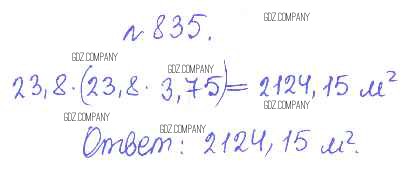 GDZ.COMPANY
№ 835.
GDZ.COMPANY
GDZ.COMPANY
23,8·(23,8· 3,75)= 2124,15 м²
GDZ.COMPANY
GDZ.COMPANY
GDZ.COMPANY
Ответ: 2124,15 м².